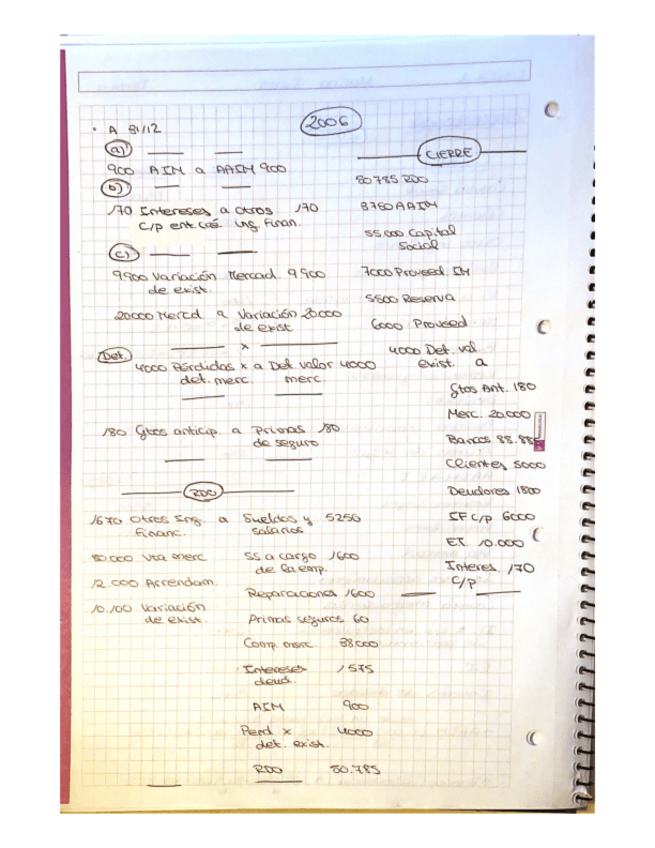 2006
· A 31/12
a)
900 AIM a AAIM 900
b)
170 Intereses a Otros 170
c/p ent. cré. ing. Finan.
c)
9900 Variación Mercad. 9900
de exist.
20000 Mercd a Variación 20000
de exist
x
Det.
4000 Pérdidas x a Det. valor 4000
det. merc. merc.
180 Gtos anticip. a Primas 180
de seguro
RDO
1670 Otros Ing. a Sueldos y 5250
Financ. salarios
SS a cargo 1600
de la emp.
12000 Arrendam.
Reparaciones 1600
10.100 Variación
de exist.
Primas seguros 60
Comp. merc 38000
Intereses 1575
deud.
AIM 900
Perd x 4000
det. exist.
RDO
CIERRE
8750 AAIM
55000 Capital
Social
7000 Proveed. IM
5500 Reserva
6000 Proveed
4000 Det. val
exist. a
Gtos Ant. 180
Merc. 20.000
Bancos
Clientes 5000
Deudores 1800
IF c/p 6000
ET 10.000
Interes. 170
c/p